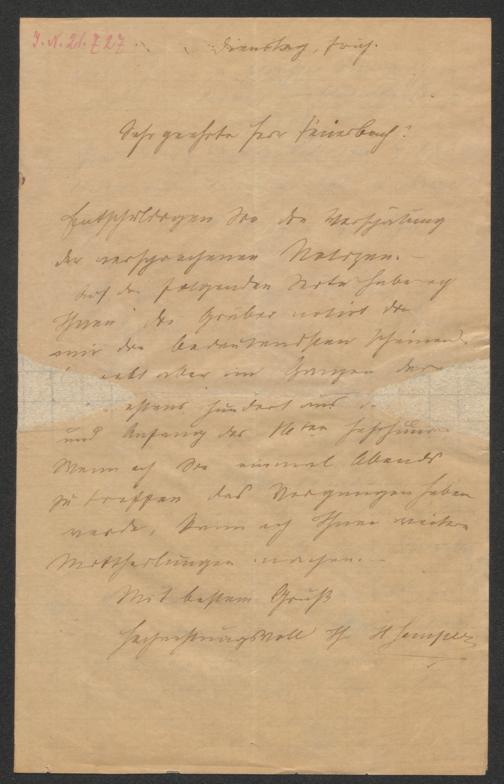 I. N. 21.727
Dienstag, früh.
Sehr geehrter Herr Feuerbach!
Entschuldigen Sie die Verspätung
der versprochenen Notizen. –
Auf der folgenden Seite habe ich
Ihnen die Gräber notirt die
mir die bedeutendsten scheinen
aber im Ganzen
hundert aus
und Anfang des 16ten
Wenn ich Sie einmal Abends
zu treffen das Vergnügen haben
werde, kann ich Ihnen weitere
Mittheilungen machen. –
Mit bestem Gruß
Hochachtungsvoll Ihr H Semper